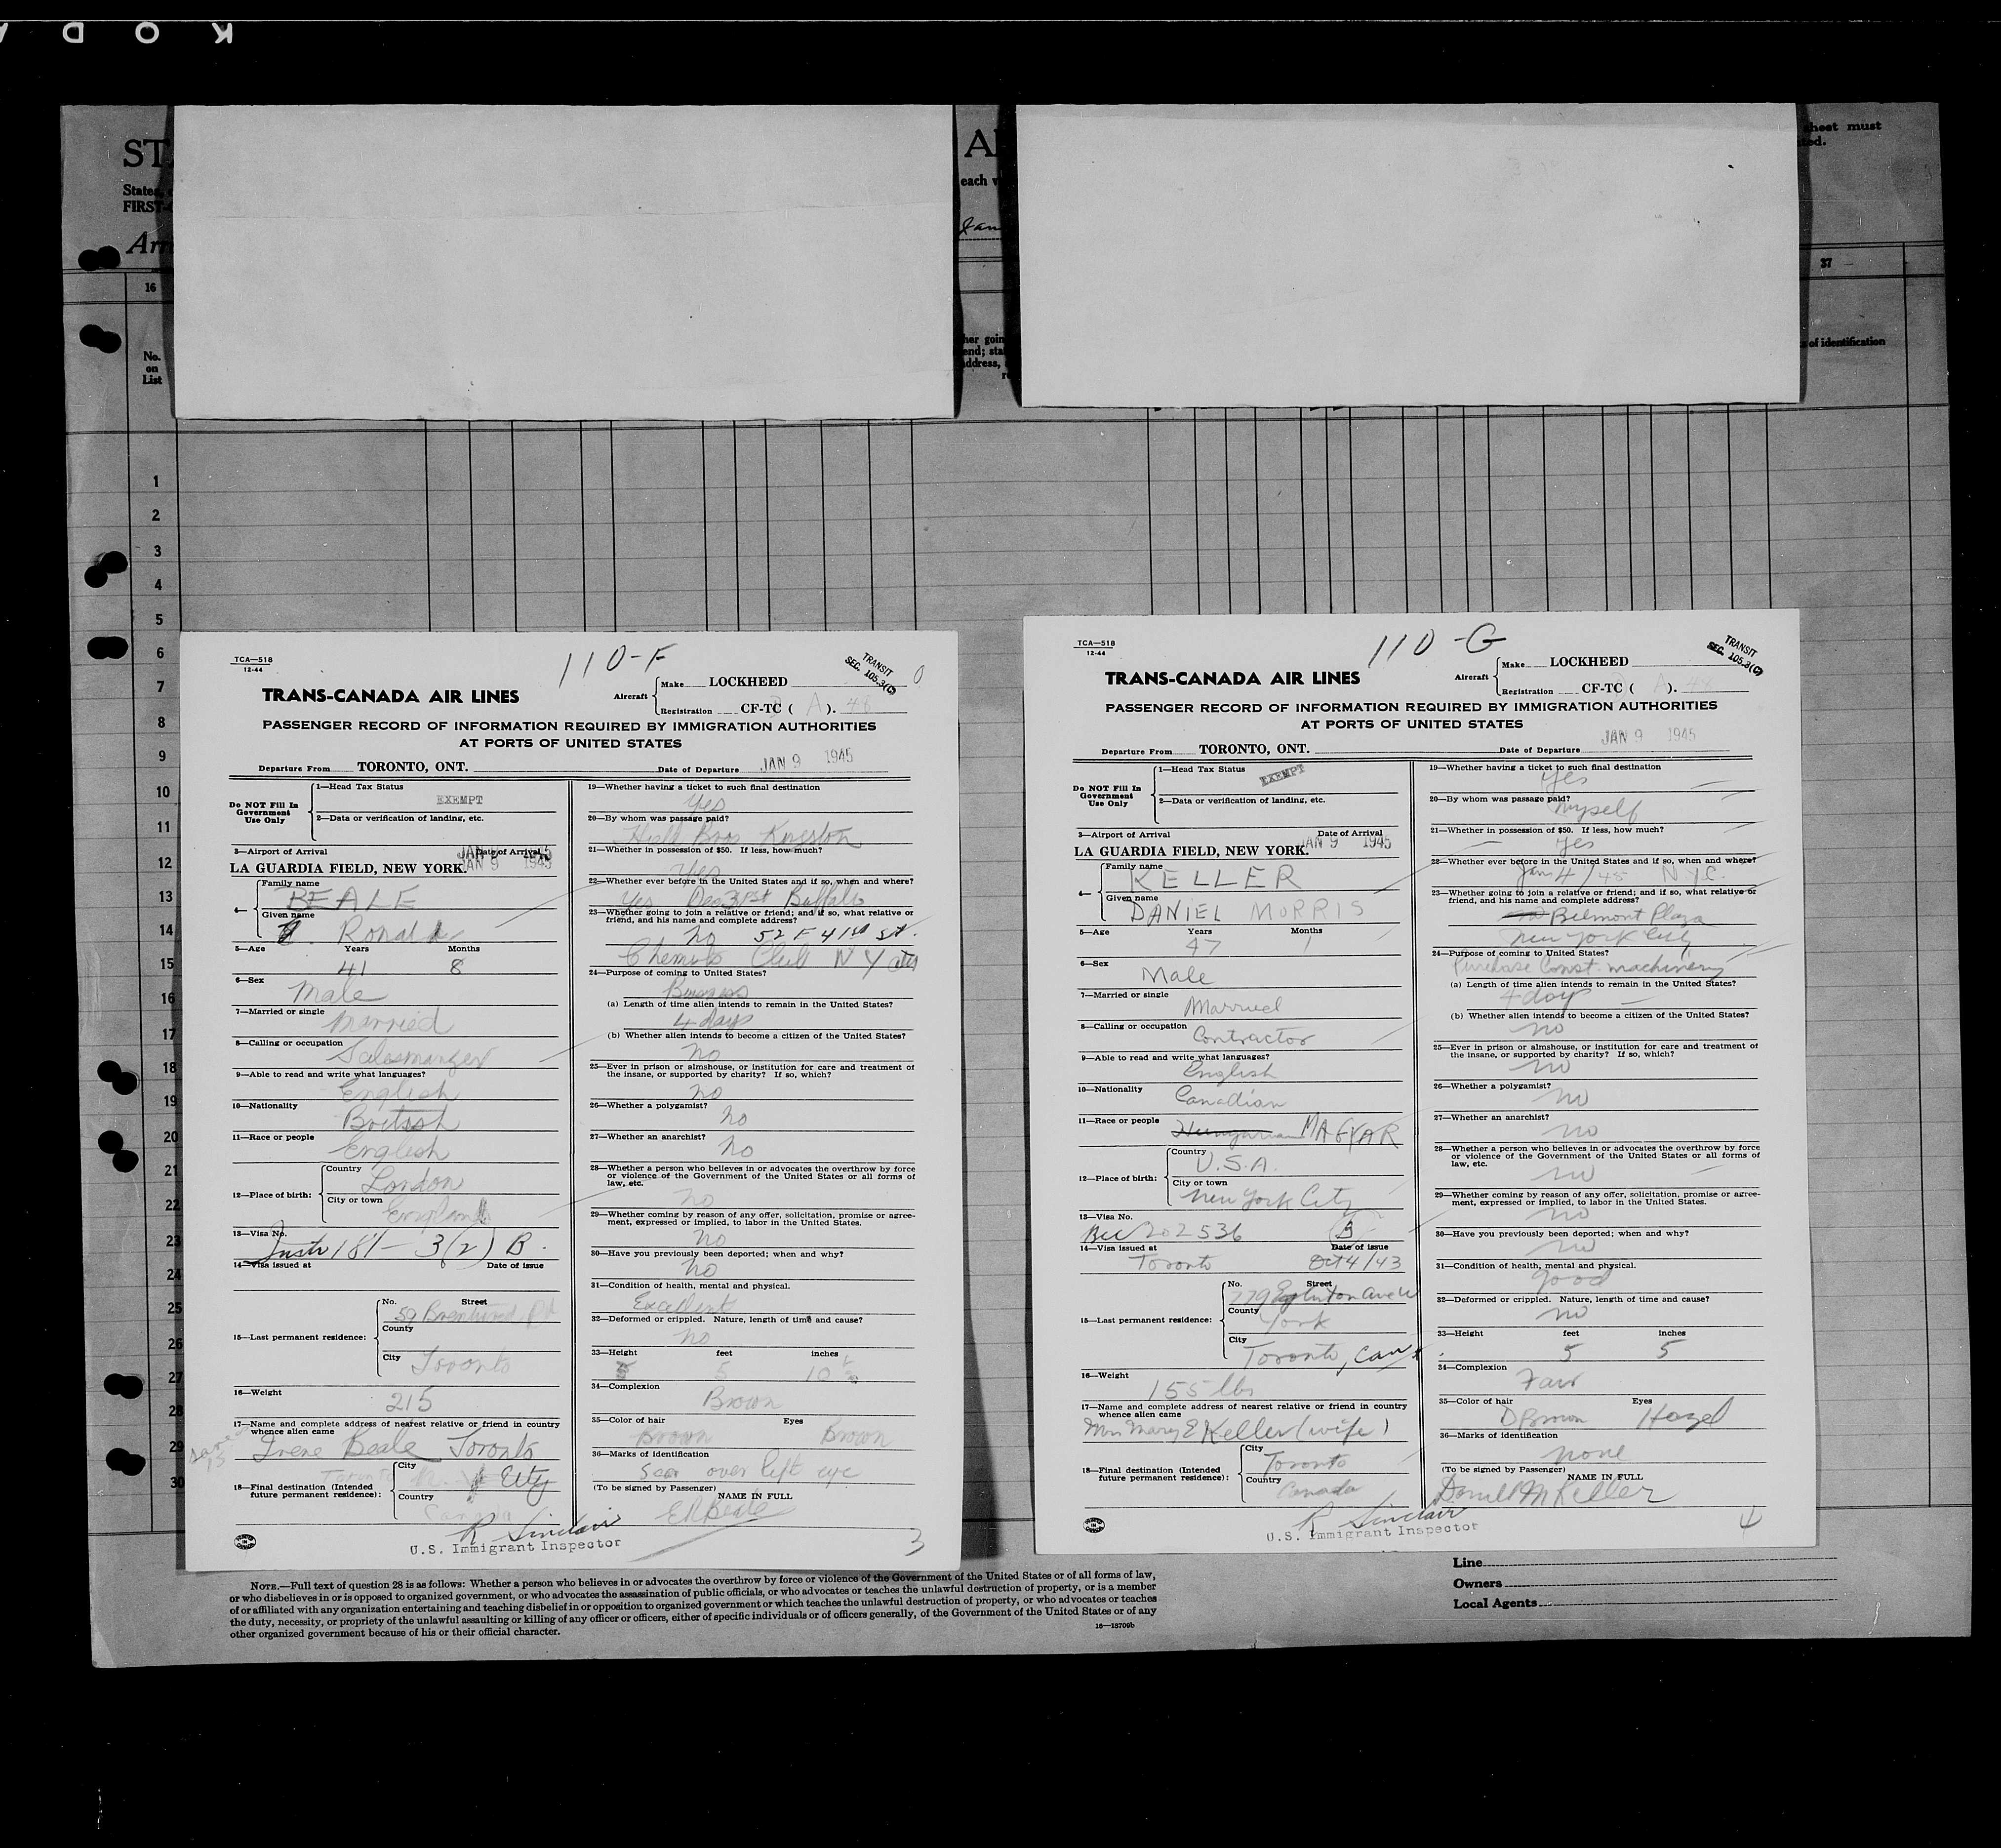 K O D A
ST
States,
FIRST-
Arri
16
No.
on
List
A
each v
Jan
her goin
end; sta
address,
sheet must
ted.
37
s of identification
1
2
3
4
5
6
7
8
9
10
11
12
13
14
15
16
17
18
19
20
21
22
23
24
25
26
27
28
29
30
TCA—518
12-44
110-F
TRANSIT
SEC. 105.3(C)
TRANS-CANADA AIR LINES
Aircraft
Make LOCKHEED
Registration CF-TC ( A ). 48
PASSENGER RECORD OF INFORMATION REQUIRED BY IMMIGRATION AUTHORITIES
AT PORTS OF UNITED STATES
Departure From TORONTO, ONT. Date of Departure JAN 9 1945
Do NOT Fill In
Government
Use Only
1—Head Tax Status
EXEMPT
2—Data or verification of landing, etc.
3—Airport of Arrival Date of Arrival
LA GUARDIA FIELD, NEW YORK. JAN 9 1945
4—
Family name
BEALE
Given name
Ronald
5—Age Years Months
41 8
6—Sex
Male
7—Married or single
Married
8—Calling or occupation
9—Able to read and write what languages?
English
10—Nationality
British
11—Race or people
English
12—Place of birth:
Country
London
City or town
England
13—Visa No.
Instr 181 - 3(2) B.
14—Visa issued at Date of issue
15—Last permanent residence:
No. Street
59 Brentwood Rd
County
City
Toronto
16—Weight
215
17—Name and complete address of nearest relative or friend in country
whence alien came
Irene Beale Toronto
same as
15
18—Final destination (Intended
future permanent residence):
City
Toronto City
Country
Canada
R Sinclair
U.S. Immigrant Inspector
19—Whether having a ticket to such final destination
Yes
20—By whom was passage paid?
Bros Kingston
21—Whether in possession of $50. If less, how much?
Yes
22—Whether ever before in the United States and if so, when and where?
Yes Dec 31st Buffalo
23—Whether going to join a relative or friend; and if so, what relative or
friend, and his name and complete address?
No 52 E 41st St.
Chemists Club N Y City
24—Purpose of coming to United States?
Business
(a) Length of time alien intends to remain in the United States?
4 days
(b) Whether alien intends to become a citizen of the United States?
No
25—Ever in prison or almshouse, or institution for care and treatment of
the insane, or supported by charity? If so, which?
No
26—Whether a polygamist?
No
27—Whether an anarchist?
No
28—Whether a person who believes in or advocates the overthrow by force
or violence of the Government of the United States or all forms of
law, etc.
No
29—Whether coming by reason of any offer, solicitation, promise or agree-
ment, expressed or implied, to labor in the United States.
No
30—Have you previously been deported; when and why?
No
31—Condition of health, mental and physical.
Excellent
32—Deformed or crippled. Nature, length of time and cause?
No
33—Height feet inches
5 10 ½
34—Complexion
Brown
35—Color of hair Eyes
Brown Brown
36—Marks of identification
Scar over left eye
(To be signed by Passenger)
NAME IN FULL
ERBeale
3
TCA—518
12-44
110-G
TRANSIT
SEC. 105.3(C)
TRANS-CANADA AIR LINES
Aircraft
Make LOCKHEED
Registration CF-TC ( A ). 48
PASSENGER RECORD OF INFORMATION REQUIRED BY IMMIGRATION AUTHORITIES
AT PORTS OF UNITED STATES
Departure From TORONTO, ONT. Date of Departure JAN 9 1945
Do NOT Fill In
Government
Use Only
1—Head Tax Status
EXEMPT
2—Data or verification of landing, etc.
3—Airport of Arrival Date of Arrival
LA GUARDIA FIELD, NEW YORK. JAN 9 1945
4—
Family name
KELLER
Given name
DANIEL MORRIS
5—Age Years Months
47 1
6—Sex
Male
7—Married or single
Married
8—Calling or occupation
Contractor
9—Able to read and write what languages?
English
10—Nationality
Canadian
11—Race or people
Hungarian MAGYAR
12—Place of birth:
Country
U.S.A.
City or town
New York City
13—Visa No.
Bcc 202536 B
14—Visa issued at Date of issue
Toronto Oct 4/43
15—Last permanent residence:
No. Street
779 Eglinton Ave W
County
York
City
Toronto, Can
16—Weight
155 lbs
17—Name and complete address of nearest relative or friend in country
whence alien came
Mrs Mary E Keller (wife)
18—Final destination (Intended
future permanent residence):
City
Toronto
Country
Canada
R Sinclair
U.S. Immigrant Inspector
19—Whether having a ticket to such final destination
Yes
20—By whom was passage paid?
Myself
21—Whether in possession of $50. If less, how much?
Yes
22—Whether ever before in the United States and if so, when and where?
Jan 4/45 N.Y.C.
23—Whether going to join a relative or friend; and if so, what relative or
friend, and his name and complete address?
no Belmont Plaza
New York City
24—Purpose of coming to United States?
Purchase Const. machinery
(a) Length of time alien intends to remain in the United States?
4 days
(b) Whether alien intends to become a citizen of the United States?
no
25—Ever in prison or almshouse, or institution for care and treatment of
the insane, or supported by charity? If so, which?
no
26—Whether a polygamist?
no
27—Whether an anarchist?
no
28—Whether a person who believes in or advocates the overthrow by force
or violence of the Government of the United States or all forms of
law, etc.
no
29—Whether coming by reason of any offer, solicitation, promise or agree-
ment, expressed or implied, to labor in the United States.
no
30—Have you previously been deported; when and why?
no
31—Condition of health, mental and physical.
good
32—Deformed or crippled. Nature, length of time and cause?
no
33—Height feet inches
5 5
34—Complexion
Fair
35—Color of hair Eyes
D Brown Hazel
36—Marks of identification
none
(To be signed by Passenger)
NAME IN FULL
Daniel M Keller
4
NOTE.—Full text of question 28 is as follows: Whether a person who believes in or advocates the overthrow by force or violence of the Government of the United States or of all forms of law,
or who disbelieves in or is opposed to organized government, or who advocates the assassination of public officials, or who advocates or teaches the unlawful destruction of property, or is a member
of or affiliated with any organization entertaining and teaching disbelief in or opposition to organized government or which teaches the unlawful destruction of property, or who advocates or teaches
the duty, necessity, or propriety of the unlawful assaulting or killing of any officer or officers, either of specific individuals or of officers generally, of the Government of the United States or of any
other organized government because of his or their official character.
16—18709b
Line
Owners
Local Agents